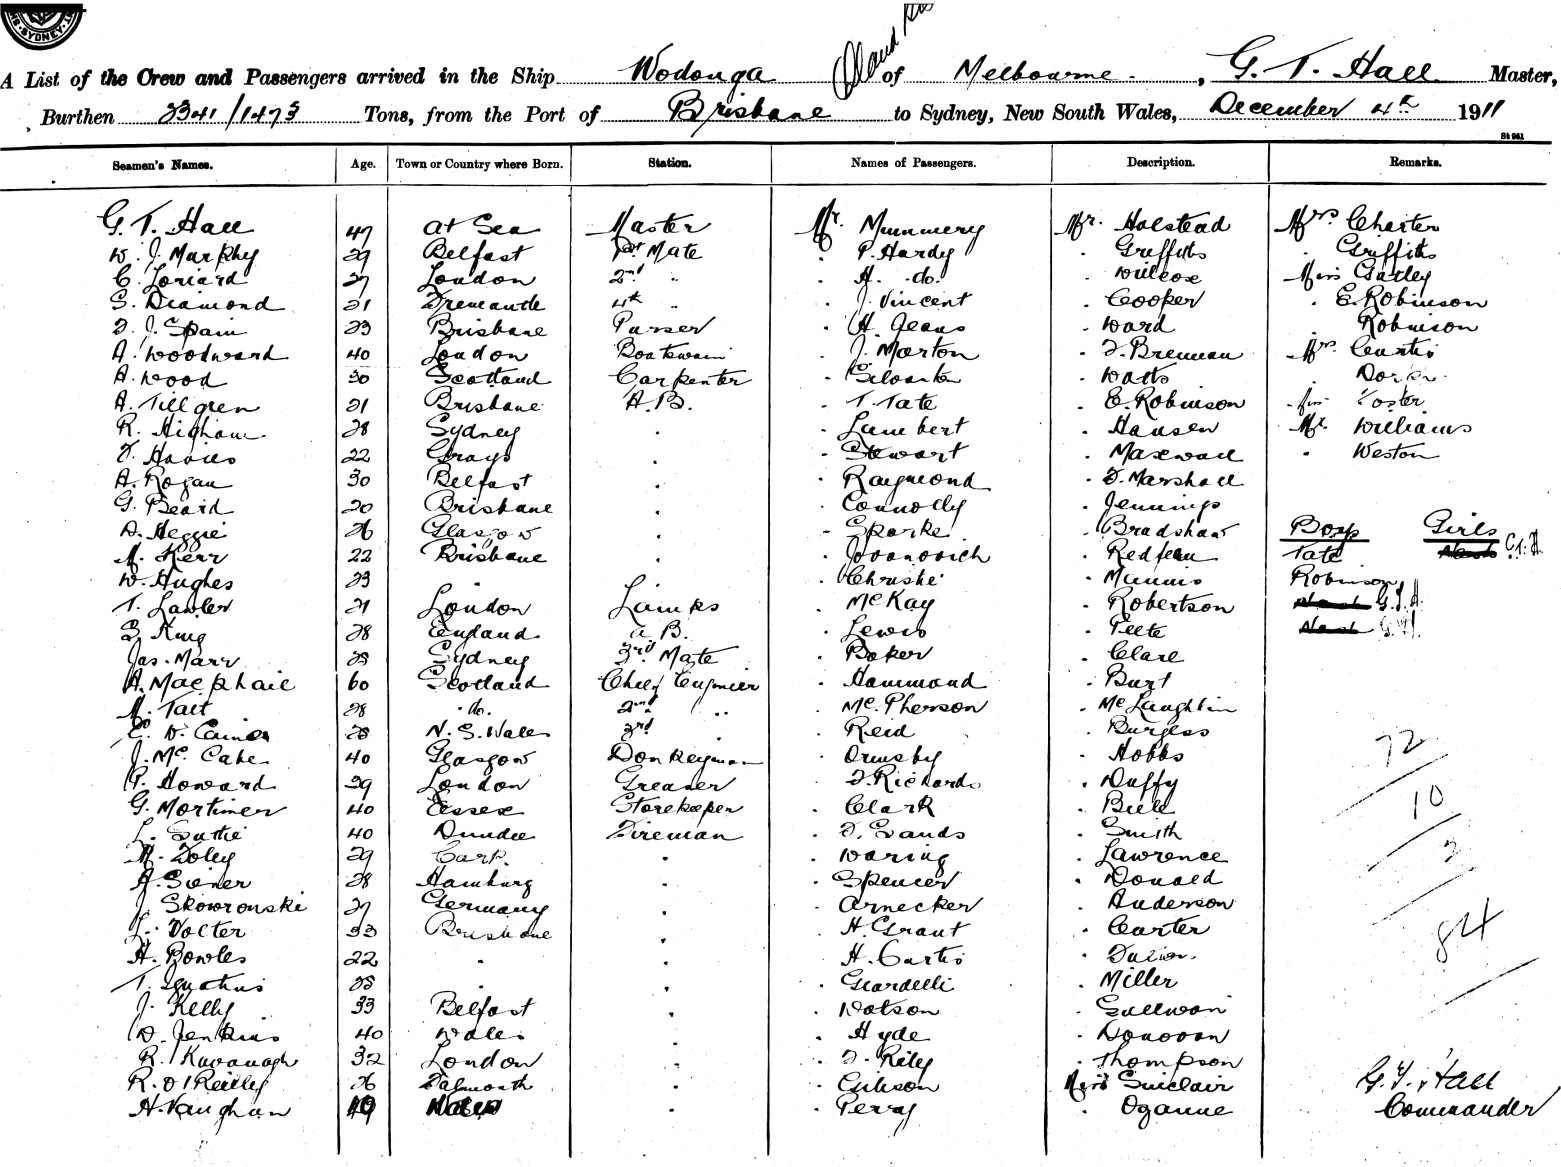 SYDNEY
A List of the Crew and Passengers arrived in the Ship Wodonga of Melbourne, G. T. Hall Master,
Burthen 2341/1473 Tons, from the Port of Brisbane to Sydney, New South Wales, December 4th 1911
St 961
Seamen's Names. Age. Town or Country where Born. Station. Names of Passengers. Description. Remarks.
G. T. Hall 47 at Sea Master Mr. Mummery Mr. Halstead Mrs Charter
W. J. Murphy 29 Belfast 1st Mate . P. Hardy . Griffiths Griffiths
C. Loriard 27 London 2nd " . H. do. . Wilcox Miss Gatley
S. Diamond 21 Fremantle 4th " . J. Vincent . Cooper . E. Robinson
F. J. Spain 23 Brisbane Purser . H. Jeans . Ward Robinson
A. Woodward 40 London Boatswain . J. Morton . F. Brennan Mrs Curtis
A. Wood 30 Scotland Carpenter . . Watts
A. Tillgren 21 Brisbane A.B. . T. Tate . E. Robinson Foster
R. Higham 28 Sydney . . Lambert . Hansen Mr Williams
F. Davies 22 Grays . . Stewart . Maxwell . Weston
A. Rogan 30 Belfast . . Raymond . F. Marshall
G. Beard 20 Brisbane . . Connolly . Jennings
D. Heggie 26 Glasgow . . Sparke . Bradshaw Boys Girls
M. Kerr 22 Brisbane . . Jovanovich . Redfern Tate Nash G.T.H.
W. Hughes 23 . . . Christie . Munns Robinson
T. Lawler 21 London Lamps . McKay . Robertson Nash G.T.H.
King 28 England A.B. . Lewis . Peete Nash G.T.H.
Jas. Marr 25 Sydney 3rd Mate . Baker . Clare
A. Macphail 60 Scotland Chief Engineer . Hammond . Burt
M. Tait 28 . do. 2nd " . McPherson . McLaughlin
C. D. Caines 28 N. S. Wales 3rd . Reid . Burgess
J. McCabe 40 Glasgow Donkeyman . Ormsby . Hobbs 72
P. Howard 39 London Greaser . F. Richards . Duffy
G. Mortimer 40 Essex Storekeeper . Clark . Bell 10
L. Suttie 40 Dundee Fireman . F. Sands . Smith
M. Foley 29 Cork. . . Waring . Lawrence 2
A. Siener 28 Hamburg . . Spencer . Donald
J. Skowronski 27 Germany . . Arnecker . Anderson
L. Volter 33 Brisbane . . H. Grant . Carter 84
H. Bowles 22 . . . H. Curtis .
T. Ignatius 25 . . . Giardelli . Miller
J. Kelly 33 Belfast . . Watson . Sullivan
D. Jenkins 40 Wales . . Hyde . Donovan
R. Kavanagh 32 London . . F. Rily . Thompson
R. O'Reilly 26 Falmouth . . Gibson Miss Sinclair G. T. Hall
H. Vaughan 19 Wales . . Perry . Oganne Commander